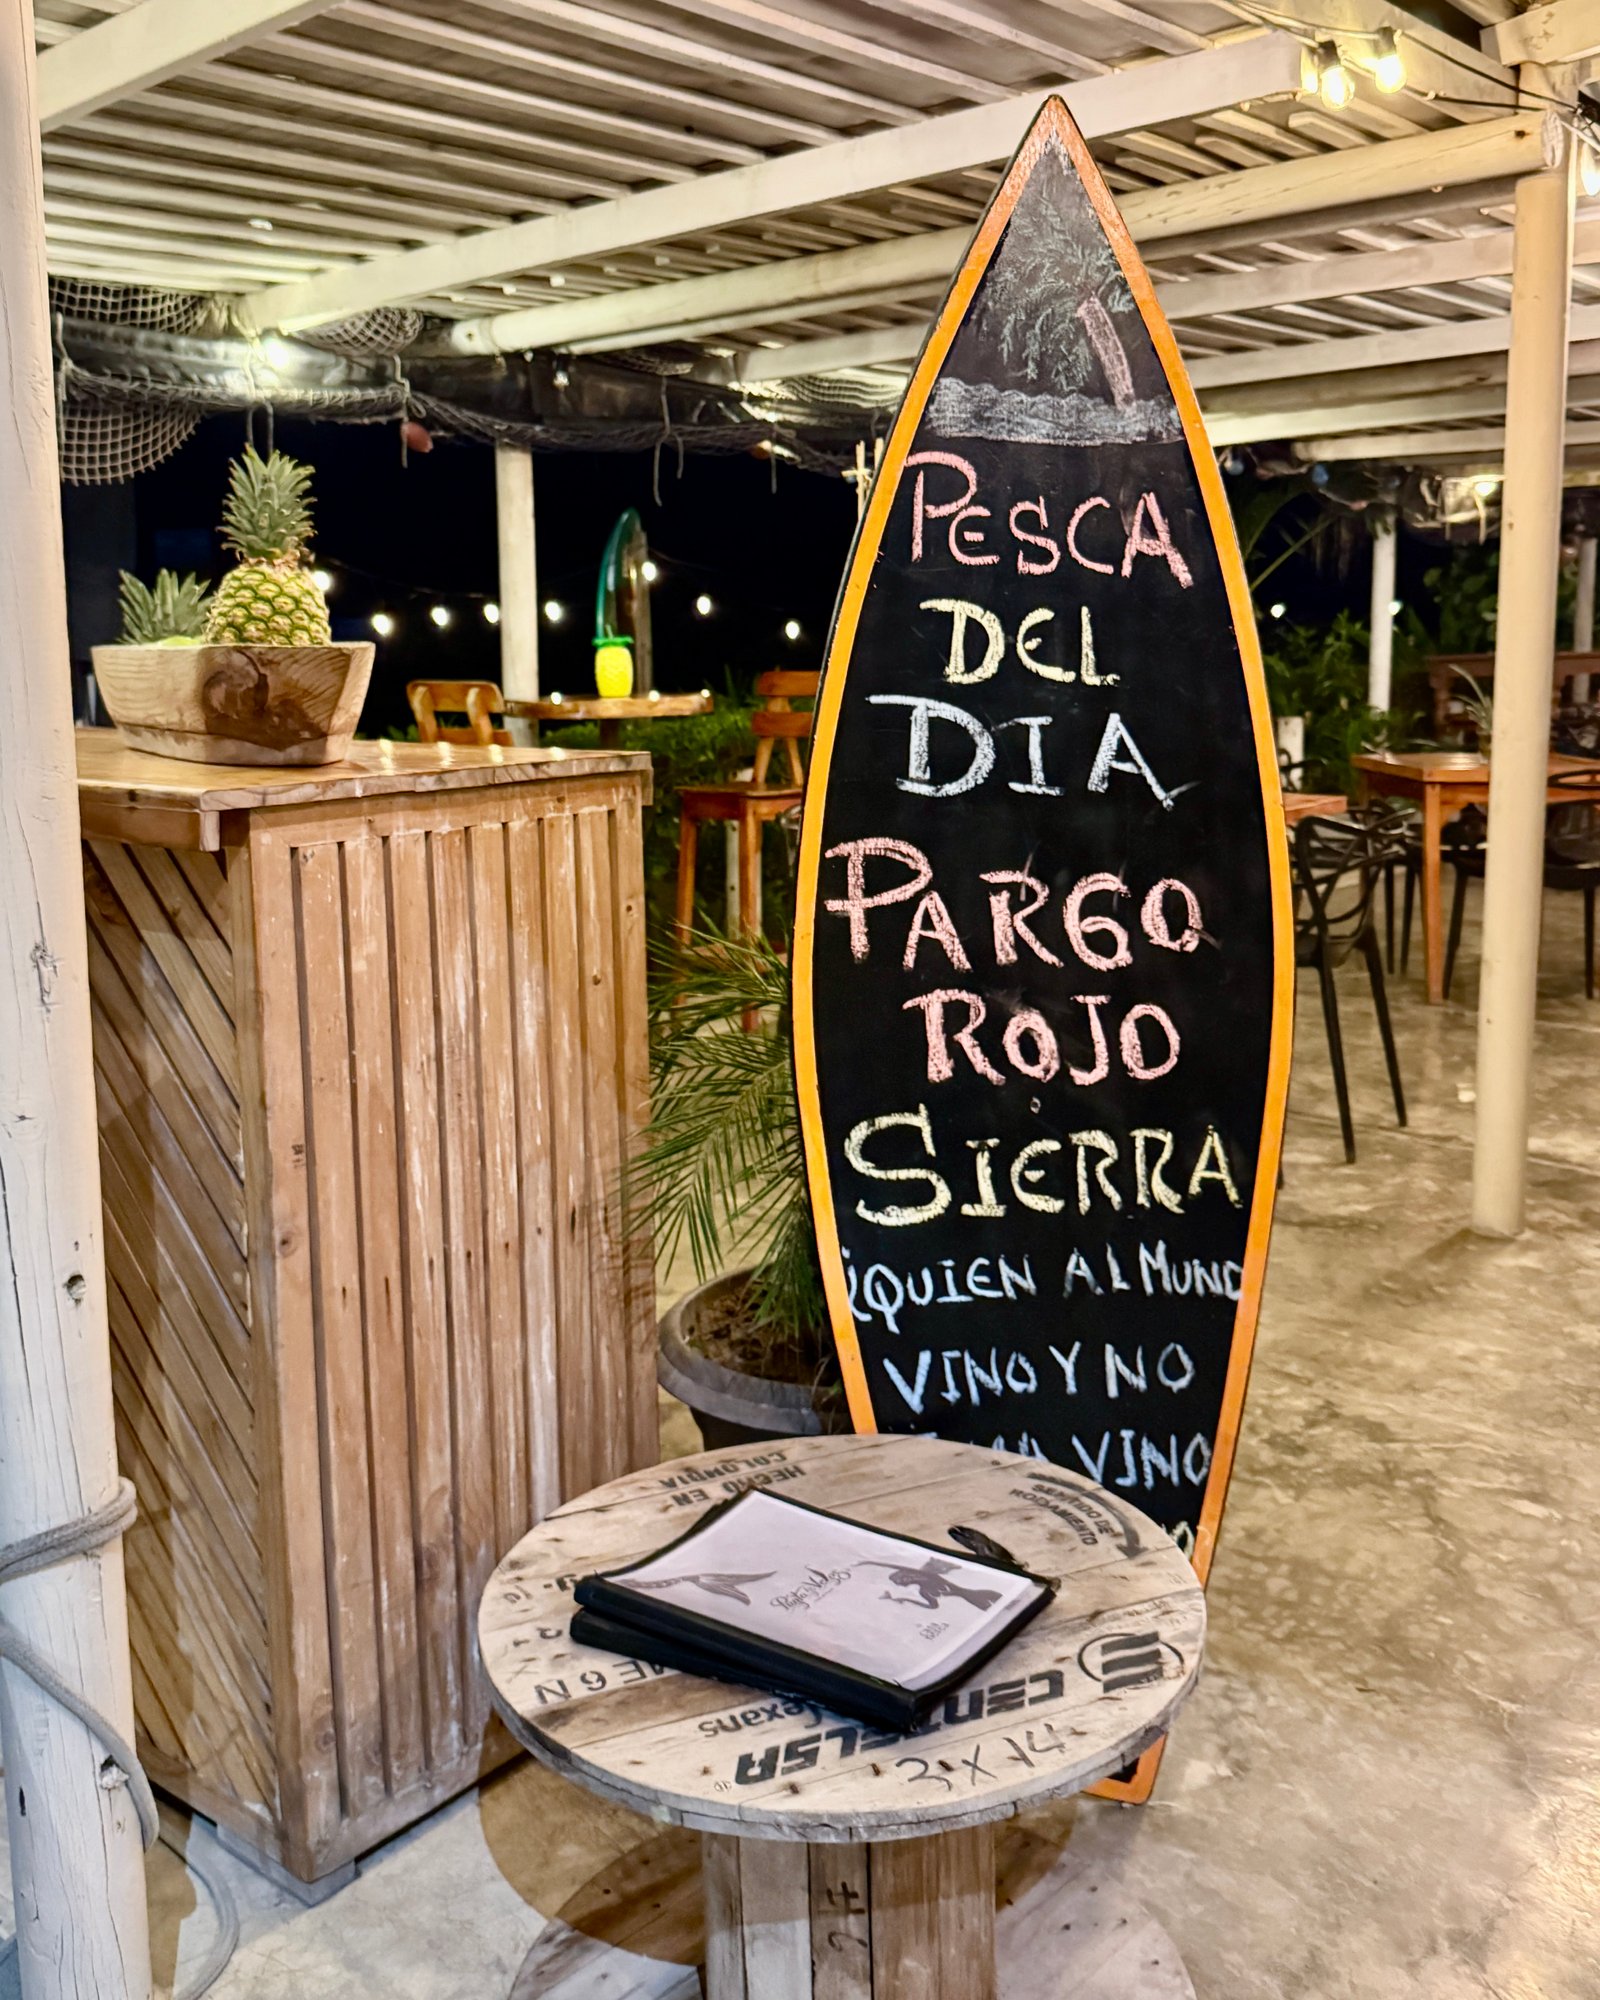 PESCA
DEL
DIA
PARGO
ROJO
SIERRA
¿QUIEN AL MUND
VINO Y NO
VINO
HECHO EN
COLOMBIA
SENTIDO DE
RODAMIENTO
CENTELSA
Nexans
3 x 14
24